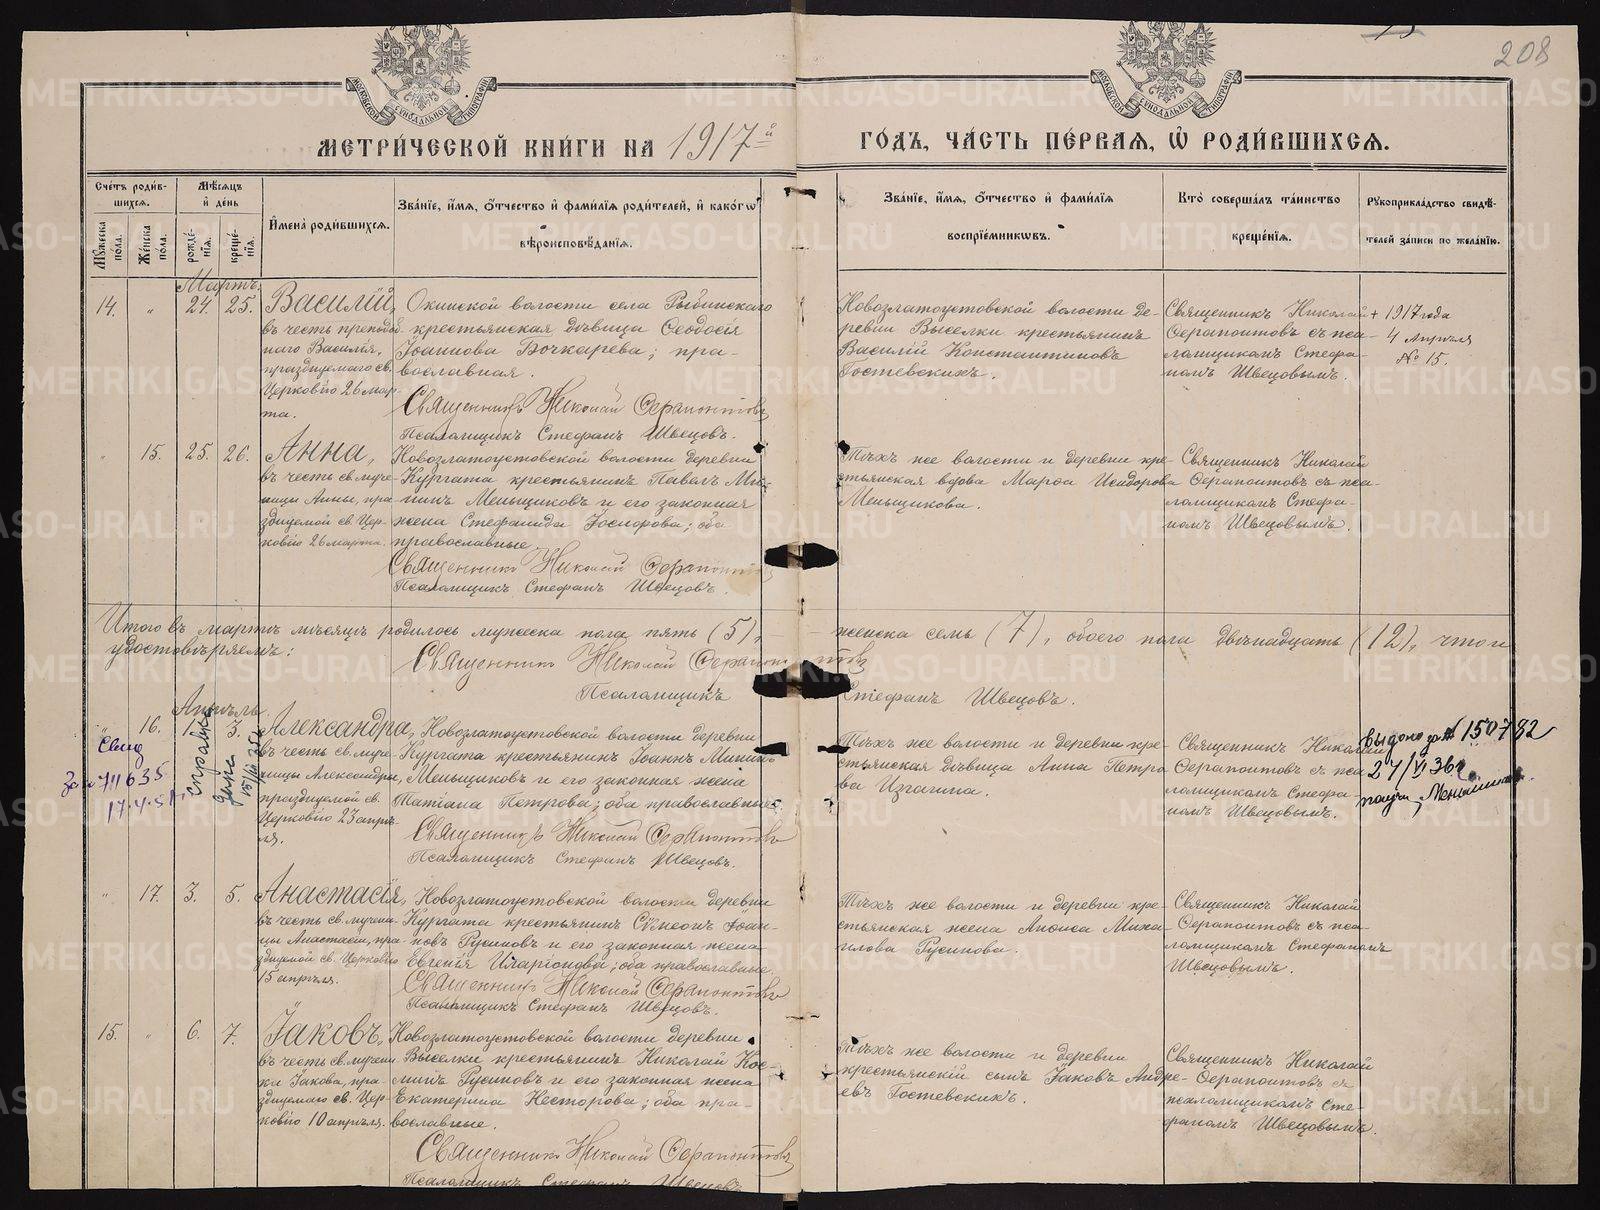 208
МЕТРИ́ЧЕСКОЙ КНИ́ГИ НА 1917й
ГО́ДЪ, ЧА́СТЬ ПЕ́РВАЯ, Ѽ РОДИ́ВШИХСЯ.
Сче́тъ роди́в-
шихся.
Мꙋжеска пола.
Же́нска пола.
Мѣ́сяцъ
и҆ де́нь
рожде́-
нїя.
креще́-
нїя.
И҆мена̀ роди́вшихся.
Зва́нїе, и҆́мя, ѻ҆́тчество и҆ фами́лїя роди́телей, и҆ како́гѡ
вѣроисповѣ́данїя.
Зва́нїе, и҆́мя, ѻ҆́тчество и҆ фами́лїя
воспрїе́мниковъ.
Кто̀ соверша́лъ та́инство
креще́нїя.
Рꙋкоприкла́дство свидѣ́-
телей за́писи по жела́нїю.
Мартъ.
14. „ 24. 25. Василій,
въ честь преподоб
наго Василія,
празднуемаго св.
Церковію 26 мар-
та.
Окинской волости села Рыбинскаго
крестьянская дѣвица Ѳеодосія
Іоаннова Бочкарева; пра-
вославная.
Священникъ Николай Серапонтовъ
Псаломщикъ Стефанъ Швецовъ.
Новозлатоустовской волости де-
ревни Выселки крестьянинъ
Василій Константиновъ
Гостевскихъ.
Священникъ Николай
Серапонтовъ съ пса-
ломщикомъ Стефа-
номъ Швецовымъ.
+ 1917 года
4 Апрѣля
№ 15.
„ 15. 25. 26. Анна,
въ честь св. муче-
ницы Анны, пра-
зднуемой св. Цер-
ковію 26 марта.
Новозлатоустовской волости деревни
Кургата крестьянинъ Павелъ Ми-
нинъ Меньщиковъ и его законная
жена Стефанида; оба
православные.
Священникъ Николай Серапонтовъ
Псаломщикъ Стефанъ Швецовъ.
Тѣхъ же волости и деревни кре-
стьянская вдова Марѳа Исидорова
Меньщикова.
Священникъ Николай
Серапонтовъ съ пса-
ломщикомъ Стефа-
номъ Швецовымъ.
Итого въ мартѣ мѣсяцѣ родилось мужеска пола пять (5), женска семь (7), обоего пола двѣнадцать (12), что и
удостовѣряемъ:
Священникъ Николай Серапонтовъ
Псаломщикъ Стефанъ Швецовъ.
Апрѣль.
„ 16. 1. 3. Александра,
въ честь св. муче-
ницы Александры,
празднуемой св.
Церковію 23 апрѣ-
ля.
Новозлатоустовской волости деревни
Кургата крестьянинъ Іоаннъ Мининъ
Меньщиковъ и его законная жена
Татіана Петрова; оба православные.
Священникъ Николай Серапонтовъ
Псаломщикъ Стефанъ Швецовъ.
Тѣхъ же волости и деревни кре-
стьянская дѣвица Анна Петро
ва Изгагина.
Священникъ Николай
Серапонтовъ съ пса
ломщикомъ Стефа-
номъ Швецовымъ.
выдано за № 150792
27/VI 36г
справка
дана
711635
„ 17. 3. 5. Анастасія,
въ честь св. мучени-
цы Анастасіи, пра-
зднуемой св. Церковію
15 апрѣля.
Новозлатоустовской волости деревни
Кургата крестьянинъ Сѵмеонъ Іоан-
новъ Русиновъ и его законная жена
Евгенія Иларіонова; оба православные.
Священникъ Николай Серапонтовъ
Псаломщикъ Стефанъ Швецовъ.
Тѣхъ же волости и деревни кре-
стьянская жена Анѳиса Миха-
илова Русинова.
Священникъ Николай
Серапонтовъ съ пса-
ломщикомъ Стефаномъ
Швецовымъ.
15. „ 6. 7. Іаковъ,
въ честь св. мучени-
ка Іакова, пра-
зднуемаго св. Цер-
ковію 10 апрѣля.
Новозлатоустовской волости деревни
Выселки крестьянинъ Николай Кос-
минъ Русиновъ и его законная жена
Екатерина Несторова; оба пра-
вославные.
Священникъ Николай Серапонтовъ
Псаломщикъ Стефанъ Швецовъ
Тѣхъ же волости и деревни
крестьянскій сынъ Іаковъ Андре-
евъ Гостевскихъ.
Священникъ Николай
Серапонтовъ съ
псаломщикомъ Сте-
фаномъ Швецовымъ.
METRIKI.GASO-URAL.RU